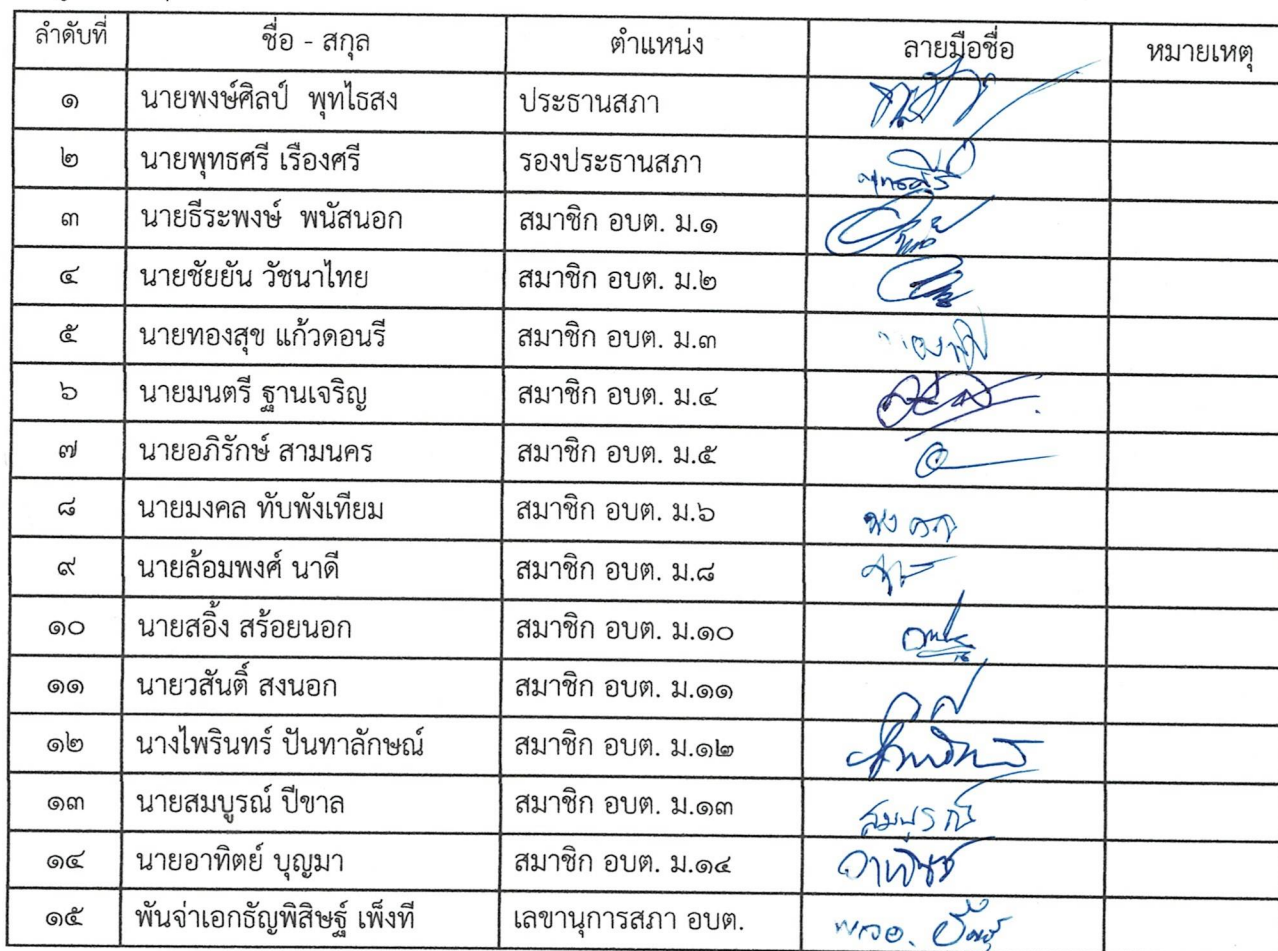 ลำดับที่ ชื่อ - สกุล ตำแหน่ง ลายมือชื่อ หมายเหตุ
๑ นายพงษ์ศิลป์ พุทไธสง ประธานสภา
๒ นายพุทธศรี เรืองศรี รองประธานสภา
๓ นายธีระพงษ์ พนัสนอก สมาชิก อบต. ม.๑
๔ นายชัยยัน วัชนาไทย สมาชิก อบต. ม.๒
๕ นายทองสุข แก้วดอนรี สมาชิก อบต. ม.๓
๖ นายมนตรี ฐานเจริญ สมาชิก อบต. ม.๔
๗ นายอภิรักษ์ สามนคร สมาชิก อบต. ม.๕
๘ นายมงคล ทับพังเทียม สมาชิก อบต. ม.๖ มงคล
๙ นายล้อมพงศ์ นาดี สมาชิก อบต. ม.๘
๑๐ นายสอิ้ง สร้อยนอก สมาชิก อบต. ม.๑๐
๑๑ นายวสันติ์ สงนอก สมาชิก อบต. ม.๑๑
๑๒ นางไพรินทร์ ปันทาลักษณ์ สมาชิก อบต. ม.๑๒
๑๓ นายสมบูรณ์ ปีขาล สมาชิก อบต. ม.๑๓ สมบูรณ์
๑๔ นายอาทิตย์ บุญมา สมาชิก อบต. ม.๑๔
๑๕ พันจ่าเอกธัญพิสิษฐ์ เพ็งที เลขานุการสภา อบต.